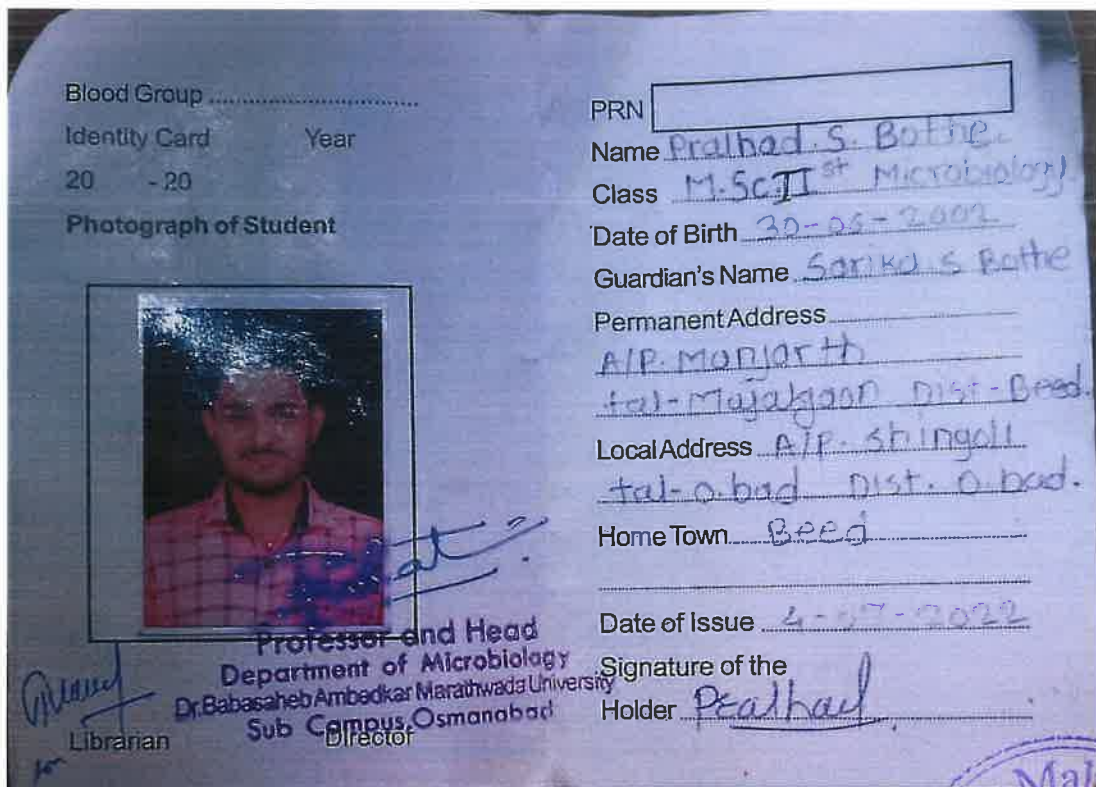 Blood Group ....................................
Identity Card Year
20 - 20
Photograph of Student
Professor and Head
Department of Microbiology
Dr.Babasaheb Ambedkar Marathwada University
Sub Campus,Osmanabad
Librarian Director
for
PRN
Name Pralhad. S. Bothe.
Class M.Sc II st Microbiology
Date of Birth 30-05-2002
Guardian's Name Sarika S Bothe
Permanent Address
A/P. Manjarth
tal-Majalgaon Dist-Beed.
Local Address A/P. Shingoli
tal-o.bad Dist. O.bad.
Home Town Beed
Date of Issue 4-07-2022
Signature of the
Holder Pralhad